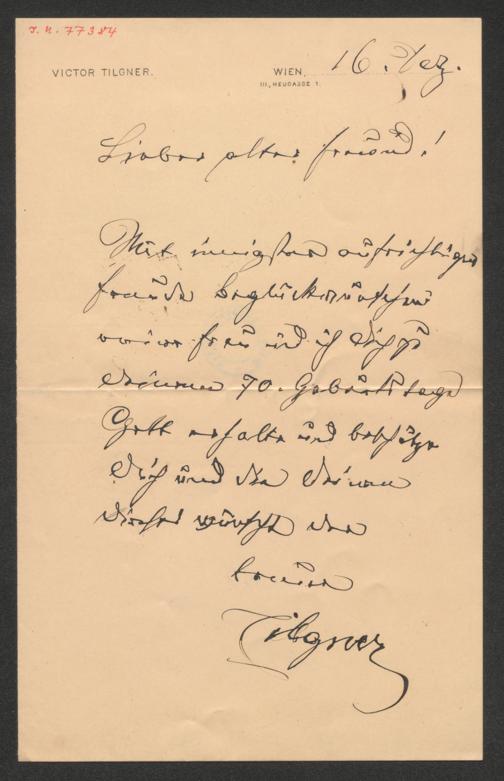 J.N. 77384
VICTOR TILGNER.
WIEN, 16. Dez.
III., HEUGASSE 1.
Lieber alter Freund!
Mit innigster aufrichtiger
Freude beglückwünschen
meine Frau und ich Dich zu
Deinem 70. Geburtstage
Gott erhalte und beschütze
Dich und die Deinen
dieses wünscht der
treue
Tilgner